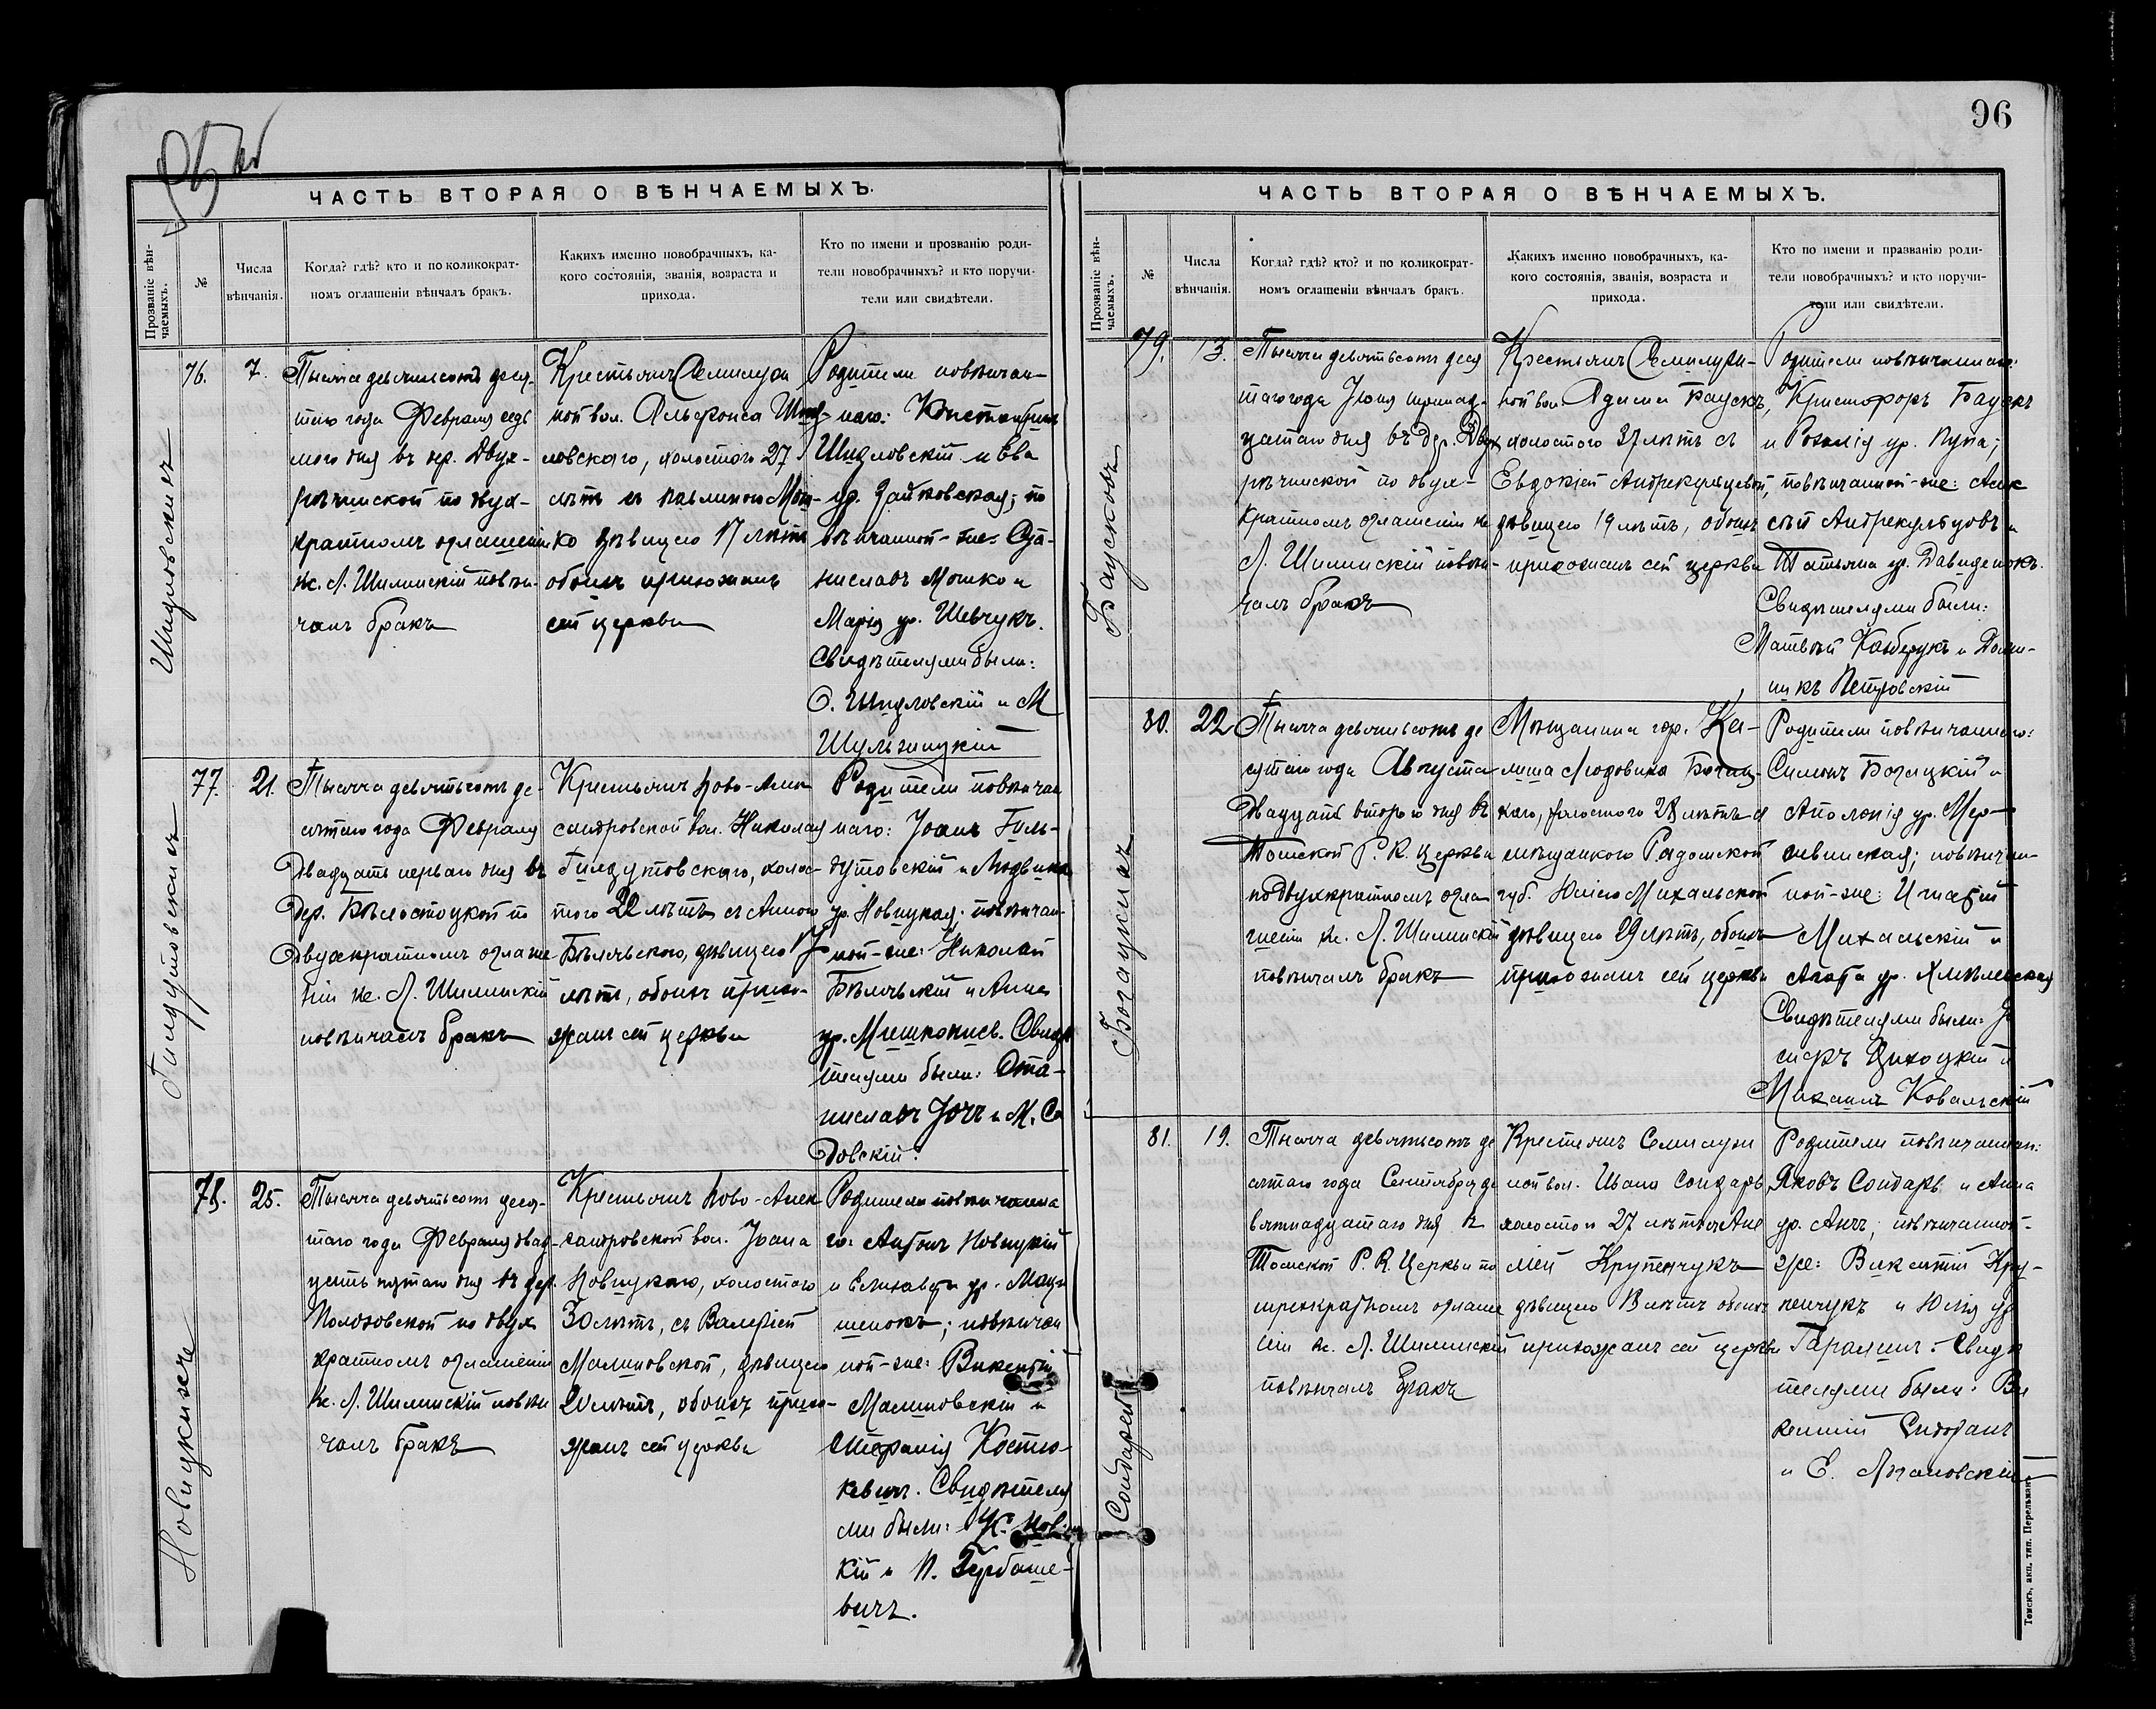 95 об
ЧАСТЬ ВТОРАЯ О ВѢНЧАЕМЫХЪ.
Прозваніе вѣн-
чаемыхъ.
№
Числа
вѣнчанія.
Когда? гдѣ? кто и по коликократ-
номъ оглашеніи вѣнчалъ бракъ.
Какихъ именно новобрачныхъ, ка-
кого состоянія, званія, возраста и
прихода.
Кто по имени и прозванію роди-
тели новобрачныхъ? и кто поручи-
тели или свидѣтели.
Шидловскихъ
76.
7.
Тысяча девятьсотъ деся-
таго года Февраля седь
мого дня въ дер. Двух-
рѣчинской по двух-
кратномъ оглашеніи
кс. Л. Шилинскій повѣн-
чалъ бракъ
Крестьянъ Семилуж
ной вол. Альфонса Шид-
ловскаго, холостого 27
лѣтъ съ Павлиной Мош-
ко дѣвицею 17 лѣтъ
обоихъ прихожанъ
сей церкви
Родители повѣнчан-
наго: Константинъ
Шидловскій и Ева
ур. Зайковская; по
вѣнчанной-же: Ста-
ниславъ Мошко и
Марія ур. Шевчукъ.
Свидѣтелями были:
О. Шидловскій и М
Шульжицкій
Гилдутовскихъ
77.
21.
Тысяча девятьсотъ де-
сятаго года Февраля
Двадцать перваго дня въ
Дер. Бѣлостоцкой по
Двухкратномъ оглаше-
ніи кс. Л. Шилинскій
повѣнчалъ бракъ
Крестьянъ Ново-Алек
сандровской вол. Николая
Гилдутовскаго, холос-
того 22 лѣтъ съ Анною
Бѣлявского, дѣвицею 17
лѣтъ, обоихъ прихо-
жанъ сей церкви
Родители повѣнчан
наго: Іоанъ Гиль-
дутовскій и Людвика
ур. Новицкая; повѣнчан-
ной-же: Николай
Бѣлявскій и Анна
ур. Мишкинисъ. Свидѣ
телями были: Ста-
ниславъ Іочъ и М. Са
довскій.
Новицкихъ
78.
25.
Тысяча девятьсотъ деся-
таго года Февраля двад-
цать пятаго дня въ дер.
Полозовской по двух
кратномъ оглашеніи
кс. Л. Шилинскій повѣн
чалъ бракъ
Крестьянъ Ново-Алек
сандровской вол. Іоана
Новицкаго, холостого
30 лѣтъ, съ Валеріей
Малиновской, дѣвицею
20 лѣтъ, обоихъ прихо-
жанъ сей церкви
Родители повѣнчанна
го: Антонъ Новицкій
и Елизавета ур. Маци
шенокъ; повѣнчан
ной-же: Викентій
Малиновскій и
Стефанія Костю-
кевичъ. Свидѣтеля
ми были: К. Новиц
кій и П. Гурбаше-
вичъ.
96
ЧАСТЬ ВТОРАЯ О ВѢНЧАЕМЫХЪ.
Прозваніе вѣн-
чаемыхъ.
№
Числа
вѣнчанія.
Когда? гдѣ? кто? и по коликократ-
номъ оглашеніи вѣнчалъ бракъ.
Какихъ именно новобрачныхъ, ка-
кого состоянія, званія, возраста и
прихода.
Кто по имени и празванію роди-
тели новобрачныхъ? и кто поручи-
тели или свидѣтели.
Баусковъ
79.
13.
Тысяча девятьсотъ деся
таго года Іюня тринад-
цатаго дня въ Др. Двух
рѣчинской по двух-
кратномъ оглашеніи кс
Л. Шилинскій повѣн-
чалъ бракъ
Крестьянъ Семилуж-
ной вол. Адама Баускъ,
холостого 37 лѣтъ съ
Евдокіей Андрекульцевой,
дѣвицею 19 лѣтъ, обоихъ
прихожанъ сей церкви
Родители повѣнчаннаго:
Христофоръ Баускъ
и Розалія ур. Пупа;
повѣнчанной-же: Алек
сѣй Андрекульцовъ и
Татьяна ур. Давиденокъ.
Свидѣтелями были:
Матвѣй Казберукъ и Доми-
никъ Петровскій
Богацкихъ
80.
22
Тысяча девятьсотъ де
сятаго года Августа
Двадцать второго дня въ
Томской Р. К. церкви
по двухкратномъ огла
шеніи кс. Л. Шилинскій
повѣнчалъ бракъ
Мѣщанина гор. Ка-
лиша Людовика Богац-
каго, холостого 28 лѣтъ съ
мѣщанкого Радомской
губ. Юліею Михальской
дѣвицею 29 лѣтъ, обоихъ
прихожанъ сей церкви
Родители повѣнчаннаго:
Симонъ Богацкій и
Аполонія ур. Мер-
; повѣнчан-
ной-же: Игнатій
Михальскій и
Агата ур. Хмѣлевская
Свидѣтелями были: Іо
сифъ Цихоцкій и
Михаилъ Ковальскій
Сондарей
81.
19.
Тысяча девятьсотъ де
сятаго года Сентября де
вятнадцатаго дня въ
Томской Р. К. Церкви по
трехкратномъ оглаше
ніи кс. Л. Шилинскій
повѣнчалъ бракъ
Крестьянъ Семилуж
ной вол. Ивана Сондаръ,
холостого 27 лѣтъ съ Аме
ліей Крупенчукъ
дѣвицею лѣтъ обоихъ
прихожанъ сей церкви
Родители повѣнчаннаг:
Яковъ Сондаръ и Анна
ур. Анчъ; повѣнчанной-
же: Викентій Кру-
пенчукъ и Юлія ур
. Свидѣ
телями были: Ви
кентій
и Е.
Томскъ, акц. тип. Перельманъ.